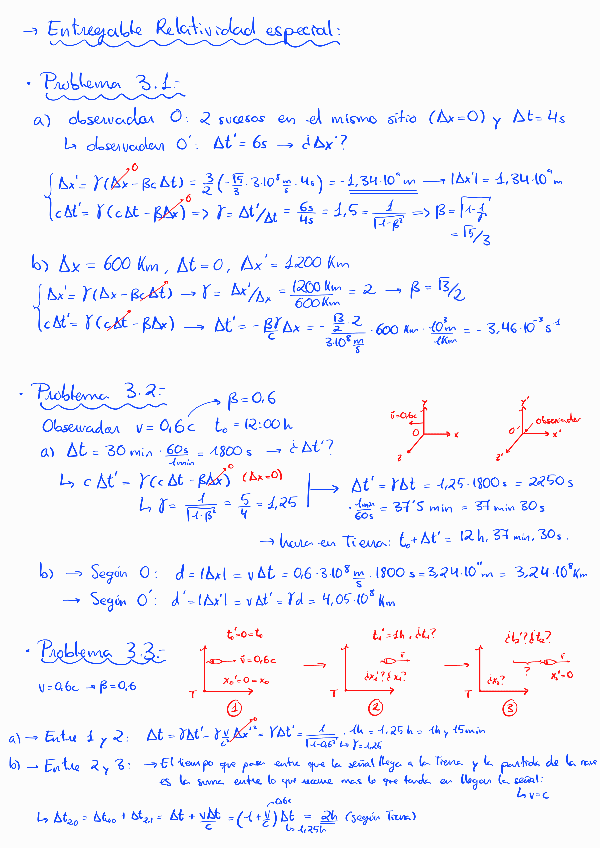 → Entregable Relatividad especial:
· Problema 3.1:-
a) observador O: 2 sucesos en el mismo sitio (Δx=0) y Δt=4s
↳ observador O': Δt'=6s → ¿Δx'?
Δx'= γ(Δx - βcΔt) = 3/2 (-√5/3 · 3·10⁸ m/s · 4s) = -1,34·10⁹ m → |Δx'| = 1,34·10⁹ m
cΔt'= γ(cΔt - βΔx) => γ = Δt'/Δt = 6s/4s = 1,5 = 1/√(1-β²) => β = √(1-1/γ)
= √5/3
b) Δx = 600 Km, Δt=0, Δx' = 1200 Km
Δx'= γ(Δx - βcΔt) → γ = Δx'/Δx = 1200 Km/600 Km = 2 → β = √3/2
cΔt'= γ(cΔt - βΔx) → Δt' = -β/c γΔx = - (√3/2 · 2)/(3·10⁸ m/s) · 600 Km · 10³m/1Km = -3,46·10⁻³ s⁻¹
· Problema 3.2:-
β=0,6
Observador v=0,6c t₀=12:00h
a) Δt = 30 min · 60s/1min = 1800 s → ¿Δt'?
↳ cΔt' - γ(cΔt - βΔx) (Δx=0)
Δt' = γΔt = 1,25·1800s = 2250s
↳ γ = 1/√(1-β²) = 5/4 = 1,25
· 1min/60s = 37'5 min = 37 min 30s
→ hora en Tierra: t₀+Δt' = 12h, 37 min, 30s.
y
v=0,6c
O
x
z
y'
O'
observador
x'
z'
b) → Según O: d = |Δx| = vΔt = 0,6·3·10⁸ m/s · 1800 s = 3,24·10¹¹ m = 3,24·10⁸ Km
→ Según O': d' = |Δx'| = vΔt' = γd = 4,05·10⁸ Km
· Problema 3.3:-
v=0,6c → β=0,6
t₀'=0=t₀
v=0,6c
x₀'=0=x₀
T
①
t₁'=1h, ¿t₁?
v
¿x₁'? ¿x₁?
T
②
¿t₂'? ¿t₂?
v
¿x₂?
?
x₁'=0
T
③
a) → Entre 1 y 2: Δt = γΔt' - γ v/c² Δx' = γΔt' = 1/√(1-0,6²) · 1h = 1,25h = 1h y 15min
↳ γ=1,25
b) → Entre 2 y 3: → El tiempo que pasa entre que la señal llega a la Tierra y la partida de la nave
es la suma entre lo que recorre mas lo que tarda en llegar la señal:
↳ v=c
0,6c
↳ Δt₂₀ = Δt₁₀ + Δt₂₁ = Δt + vΔt/c = (1+v/c)Δt = 2h (según Tierra)
↳ 1,25h